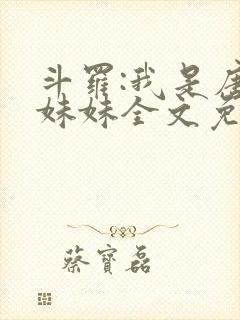 斗罗:我是唐
妹妹全文免
蔡寶磊